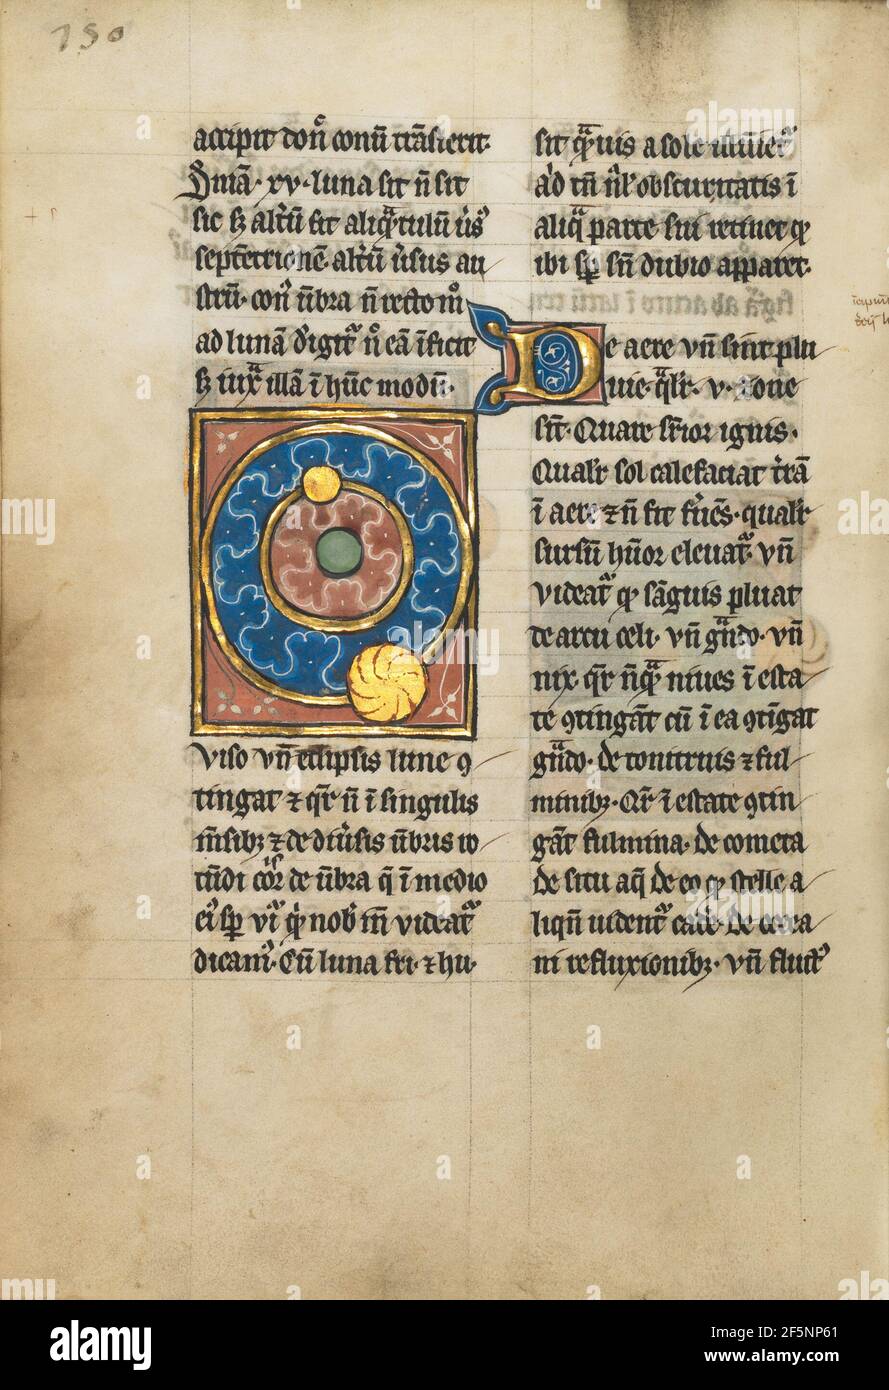 130
accipit donͨ conū trāsierit·
Qmā· xv· luna sit n̄ sit
sic ꝫ alt̄ū fit aliqͣtulū ūs᾽
septētrionē· alt̄ū ūsus au
strū· con᾽ ūbra n̄ recto mͦ
ad lunā
ꝫ iuxͣ illā ī hūc modū·
Viso vn̄ eclipsis lune ꝯ
tingat ⁊ qr̄ n̄ ī singulis
m̄sibꝫ ⁊ de diūsis ūbris ro
tūdi de ūbra q̄ ī medio
nob̄ videatͬ
dicam᾽· Cū luna
sit qͣuis a sole
ad obscuritatis ī
aliqͣ parte sui retinet
ibi sp̄ sn̄ dubio apparet·
De aere vn̄ sint plu
uie· qͣlr̄· v· zone
sīt· Quare s̄rior ignis·
Qualr̄ sol calefaciat t̄rā
ī aere ⁊ n̄ fit· qualr̄
sursū hūor eleuatͬ· vn̄
videatͬ sāguis pluat
de arcu celi· vn̄ gͣndo· vn̄
nix· qr̄ nūqͣ niues ī esta
te ꝯtingāt cū ī ea ꝯtīgat
gͣndo· de tonitruis ⁊ ful
minibꝫ· Qr̄ ī estate ꝯtin
gāt fulmina· de cometa
de situ aq̄ de eo stelle a
liqn̄ uidentͬ cade· De ocea
ni refluxionibꝫ· vn̄ fluct᾽
alamy
Image ID: 2F5NP61
www.alamy.com